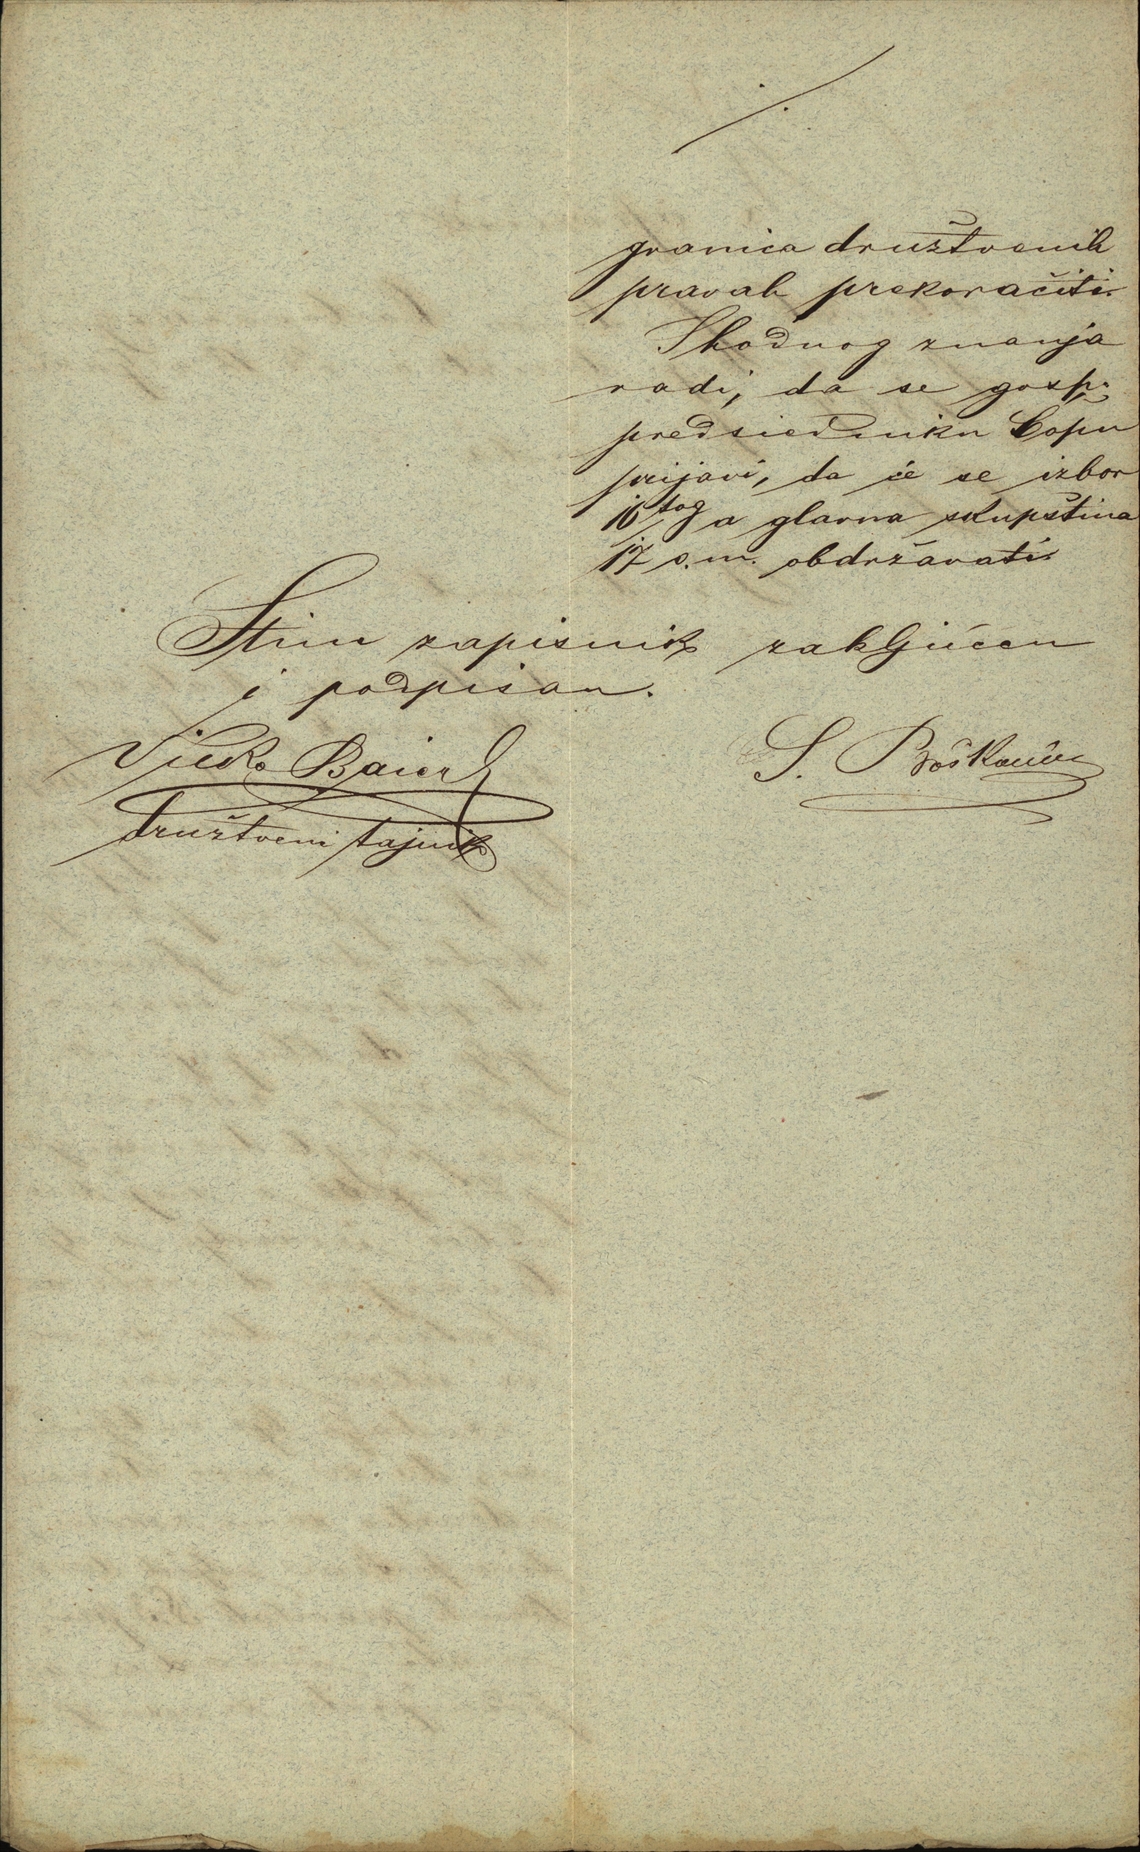 granica družtvenih
pravah prekoračiti.
Shodnog znanja
radi, da se gosp.
predsiedniku Čopu
prijavi, da će se izbor
16tog a glavna skupština
17 o.m. obdržavati.
Stim zapisnik zakljúčen
i podpisan.
Vilko Baierl
S. Bošković
družtveni tajnik